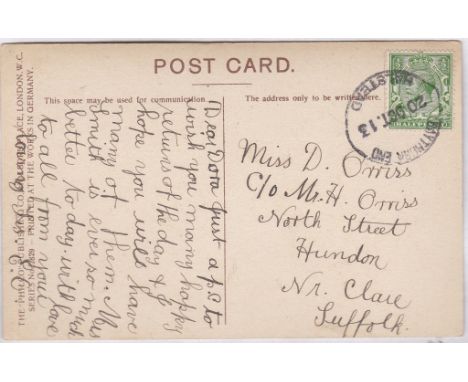 POST CARD.
This space may be used for communication.
The address only to be written here.
THE PHILCO PUBLISHING CO. PLACE, LONDON, W.C.
SERIES No. PRINTED AT THE WORKS IN GERMANY.
Dear Dora Just a p.c. to
wish you many happy
returns of the day & I
hope you will have
many of them. Mrs
Smith is ever so much
better to day, with
love
to all from your
loving
Miss D. Orriss
C/o M. H. Orriss
North Street
Hundon
Nr. Clare
Suffolk.
END
HALSTEAD
20 OC 13